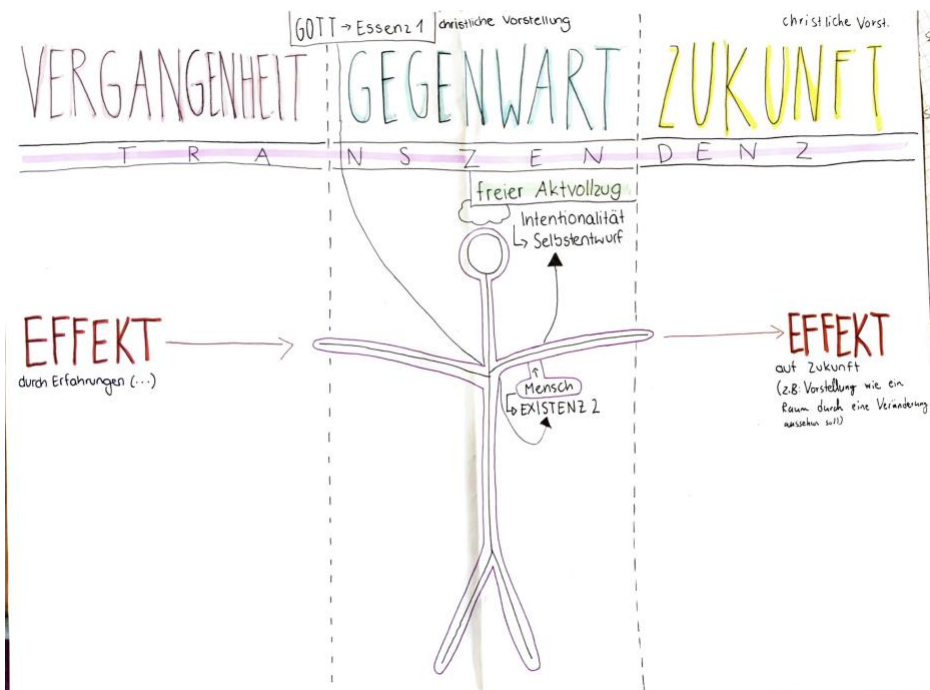 GOTT → Essenz 1 christliche Vorstellung
christliche Vorst.
VERGANGENHEIT GEGENWART ZUKUNFT
TRANSZENDENZ
freier Aktvollzug
Intentionalität
↳ Selbstentwurf
EFFEKT
durch Erfahrungen (...)
Mensch
↳ EXISTENZ 2
EFFEKT
auf Zukunft
(z.B: Vorstellung wie ein
Raum durch eine Veränderung
aussehen soll)